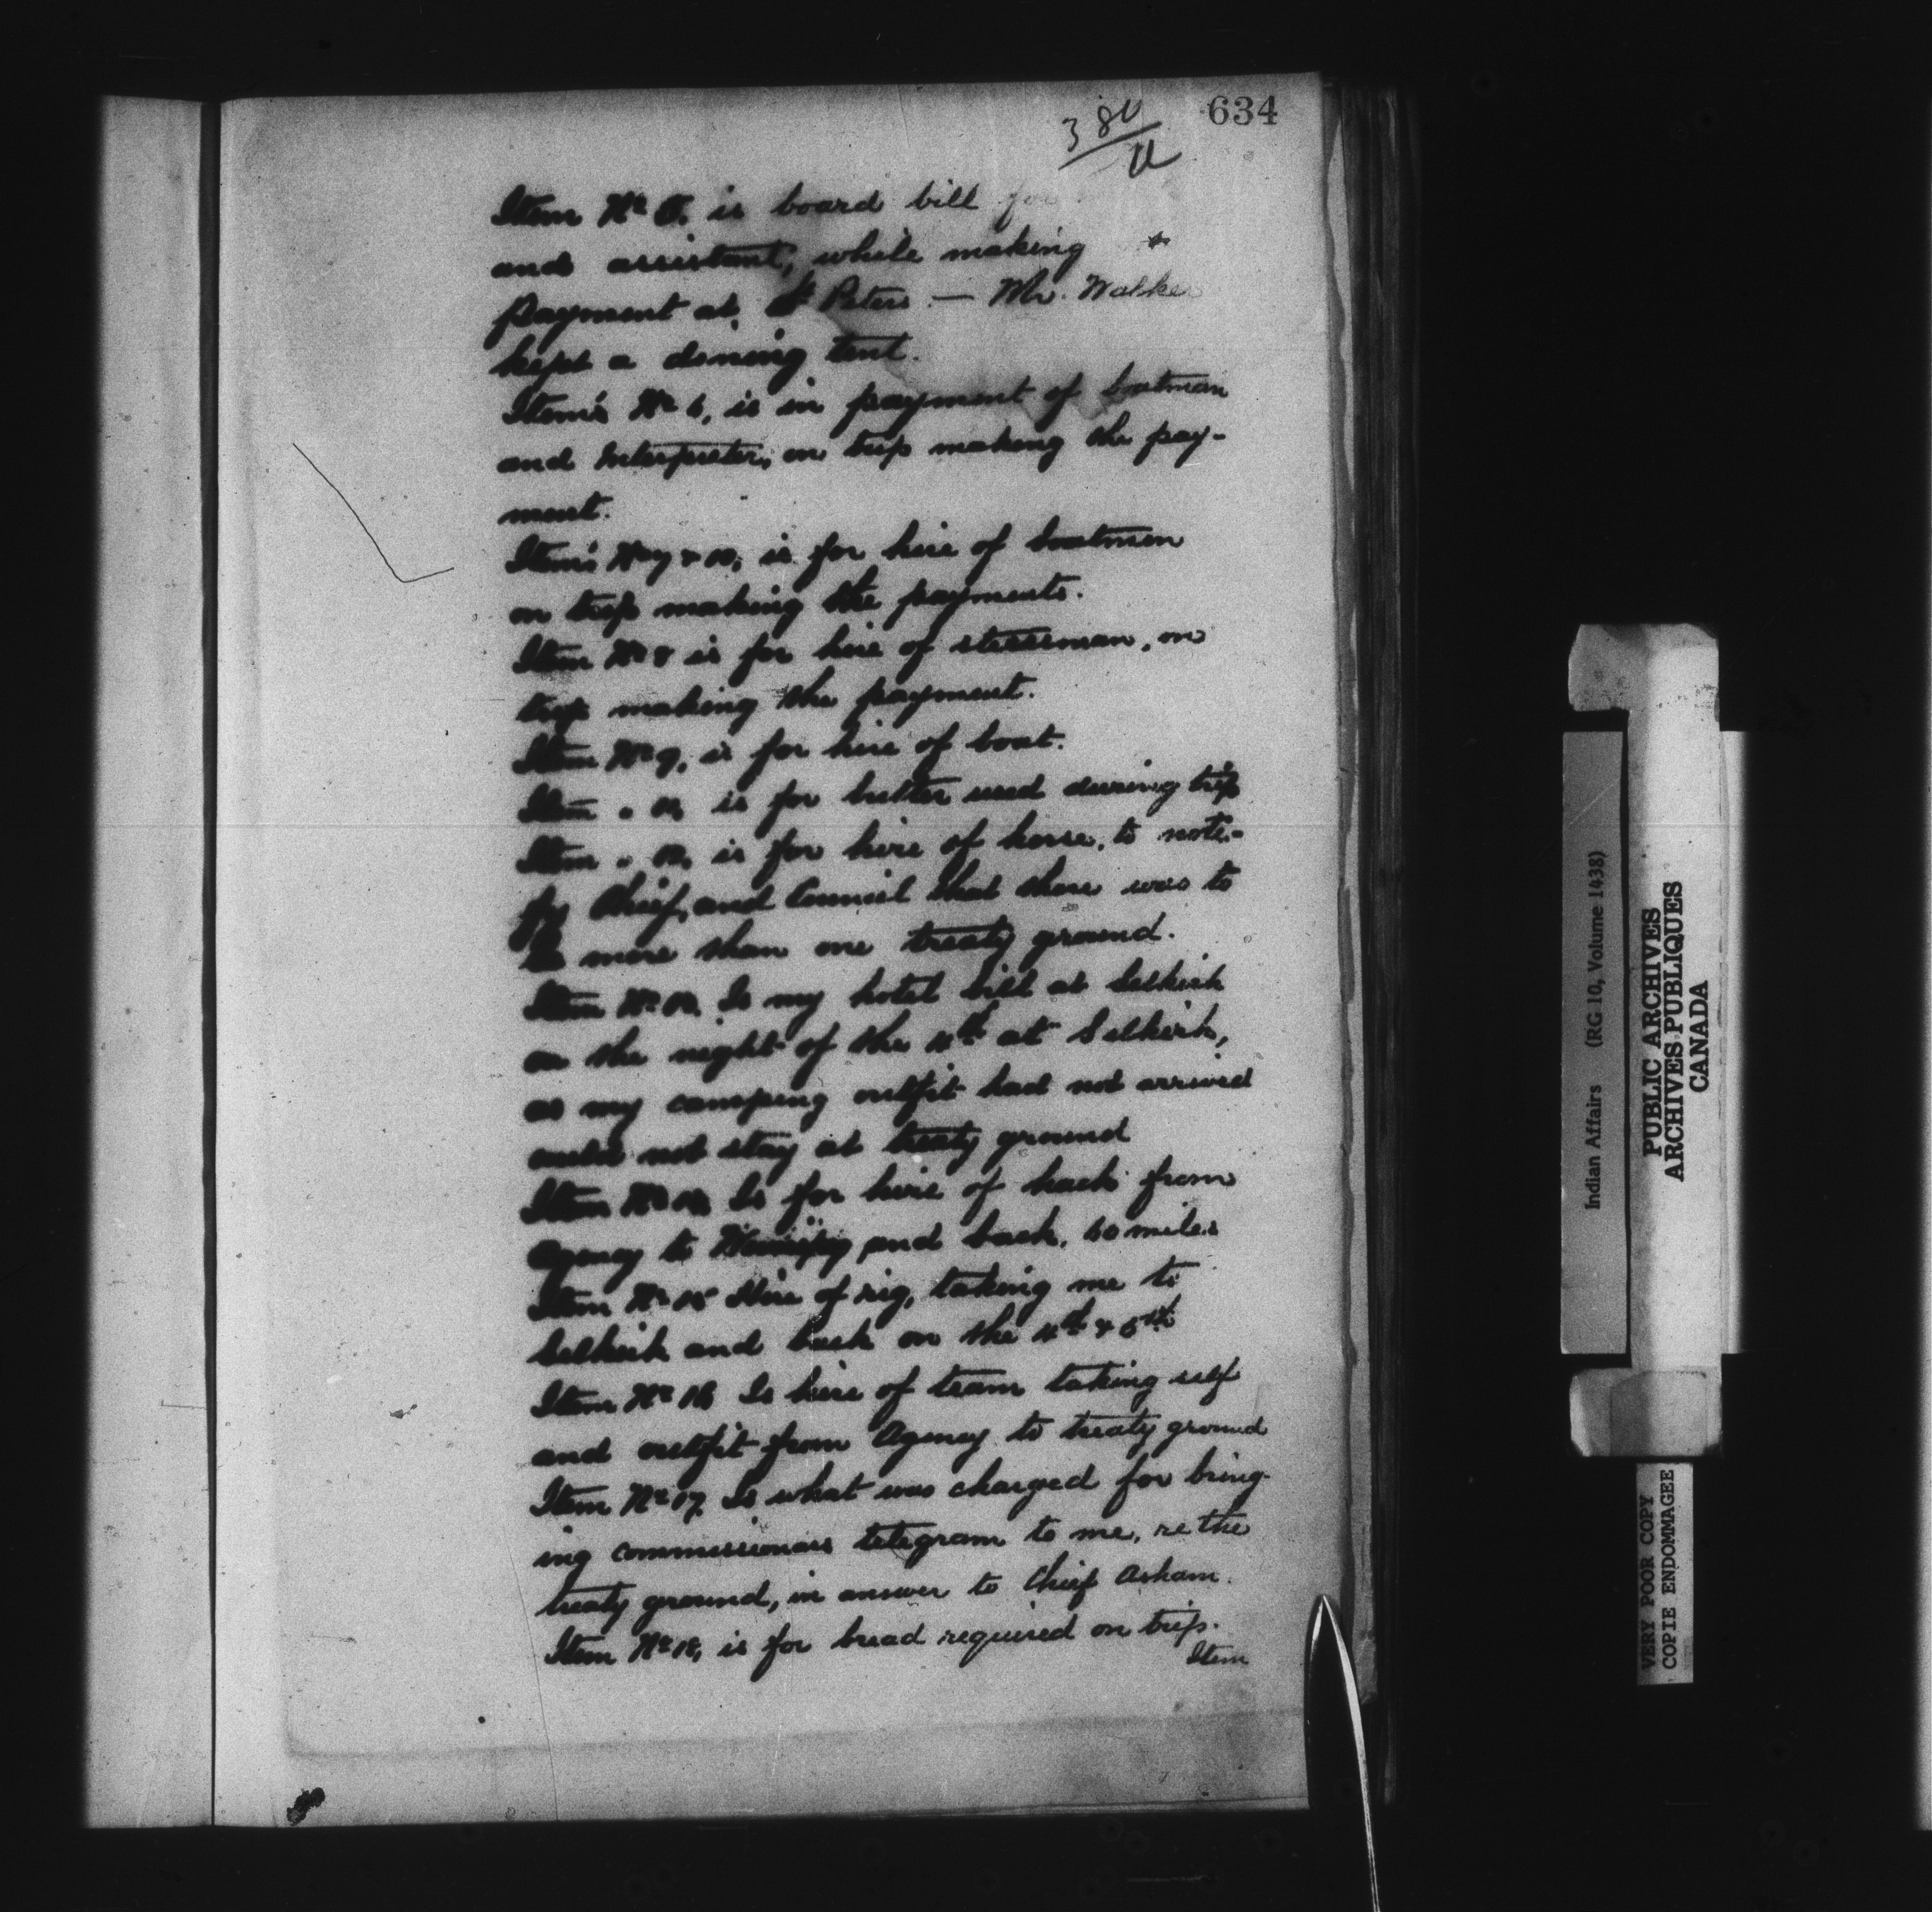 634
380
Item No 5. is board bill for
and assistant, while making
payment at St Peters — Mr. Walker
kept a dining tent.
Item's No 6, is in payment of boatman
and Interpreter, on trip making the pay-
ment.
Item's No 7 & 10, is for hire of boatmen
on trip making the payments.
Item No 8 is for hire of steersman, on
trip making the payment.
Item No 9, is for hire of boat.
Item " 11, is for butter used during trip
Item " 12, is for hire of horse, to noti-
fy Chief, and Council that there was to
be more than one treaty ground.
Item No 13, Is my hotel bill at Selkirk
on the night of the 4th at Selkirk,
as my camping outfit had not arrived
could not stay at treaty ground
Item No 14, Is for hire of hack from
Agency to Winnipeg and back, 60 miles
Item No 15 Hire of rig, taking me to
Selkirk and back on the 4th & 5th
Item No 16 Is hire of team taking self
and outfit from Agency to treaty ground
Item No 17, Is what was charged for bring-
ing commissioners telegram to me, re the
treaty ground, in answer to Chief Asham.
Item No 18, is for bread required on trip.
Item
Indian Affairs (RG 10, Volume 1438)
PUBLIC ARCHIVES
ARCHIVES PUBLIQUES
CANADA
VERY POOR COPY
COPIE ENDOMMAGEE